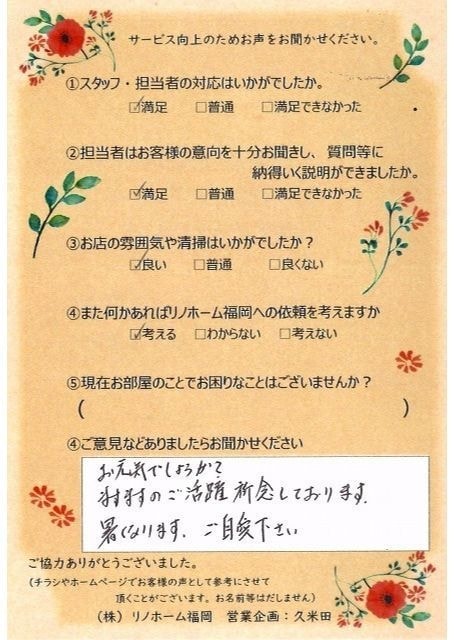 サービス向上のためお声をお聞かせください。
①スタッフ・担当者の対応はいかがでしたか。
☑満足 □普通 □満足できなかった
②担当者はお客様の意向を十分お聞きし、質問等に
納得いく説明ができましたか。
☑満足 □普通 □満足できなかった
③お店の雰囲気や清掃はいかがでしたか？
☑良い □普通 □良くない
④また何かあればリノホーム福岡への依頼を考えますか
☑考える □わからない □考えない
⑤現在お部屋のことでお困りなことはございませんか？
( )
④ご意見などありましたらお聞かせください
お元気でしょうか？
ますますのご活躍祈念しております.
暑くなります. ご自愛下さい
ご協力ありがとうございました。
(チラシやホームページでお客様の声として参考にさせて
頂くことがございます。お名前等はだしません)
(株) リノホーム福岡 営業企画：久米田